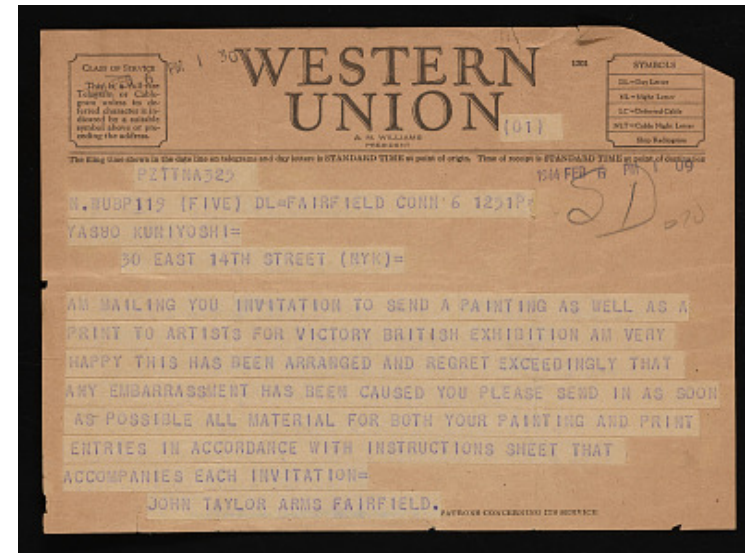 WESTERN
UNION
1201
(01)
A. N. WILLIAMS
PRESIDENT
CLASS OF SERVICE
This is a full-rate
Telegram or Cable-
gram unless its de-
ferred character is in-
dicated by a suitable
symbol above or pre-
ceding the address.
PM 1 30
SYMBOLS
DL=Day Letter
NL=Night Letter
LC=Deferred Cable
NLT=Cable Night Letter
Ship Radiogram
The filing time shown in the date line on telegrams and day letters is STANDARD TIME at point of origin. Time of receipt is STANDARD TIME at point of destination
PZTTNA325
1944 FEB 6 PM 1 09
N.WUBP119 (FIVE) DL=FAIRFIELD CONN 6 1251P=
YASUO KUNIYOSHI=
30 EAST 14TH STREET (NYK)=
AM MAILING YOU INVITATION TO SEND A PAINTING AS WELL AS A
PRINT TO ARTISTS FOR VICTORY BRITISH EXHIBITION AM VERY
HAPPY THIS HAS BEEN ARRANGED AND REGRET EXCEEDINGLY THAT
ANY EMBARRASSMENT HAS BEEN CAUSED YOU PLEASE SEND IN AS SOON
AS POSSIBLE ALL MATERIAL FOR BOTH YOUR PAINTING AND PRINT
ENTRIES IN ACCORDANCE WITH INSTRUCTIONS SHEET THAT
ACCOMPANIES EACH INVITATION=
JOHN TAYLOR ARMS FAIRFIELD.
PATRONS CONCERNING ITS SERVICE